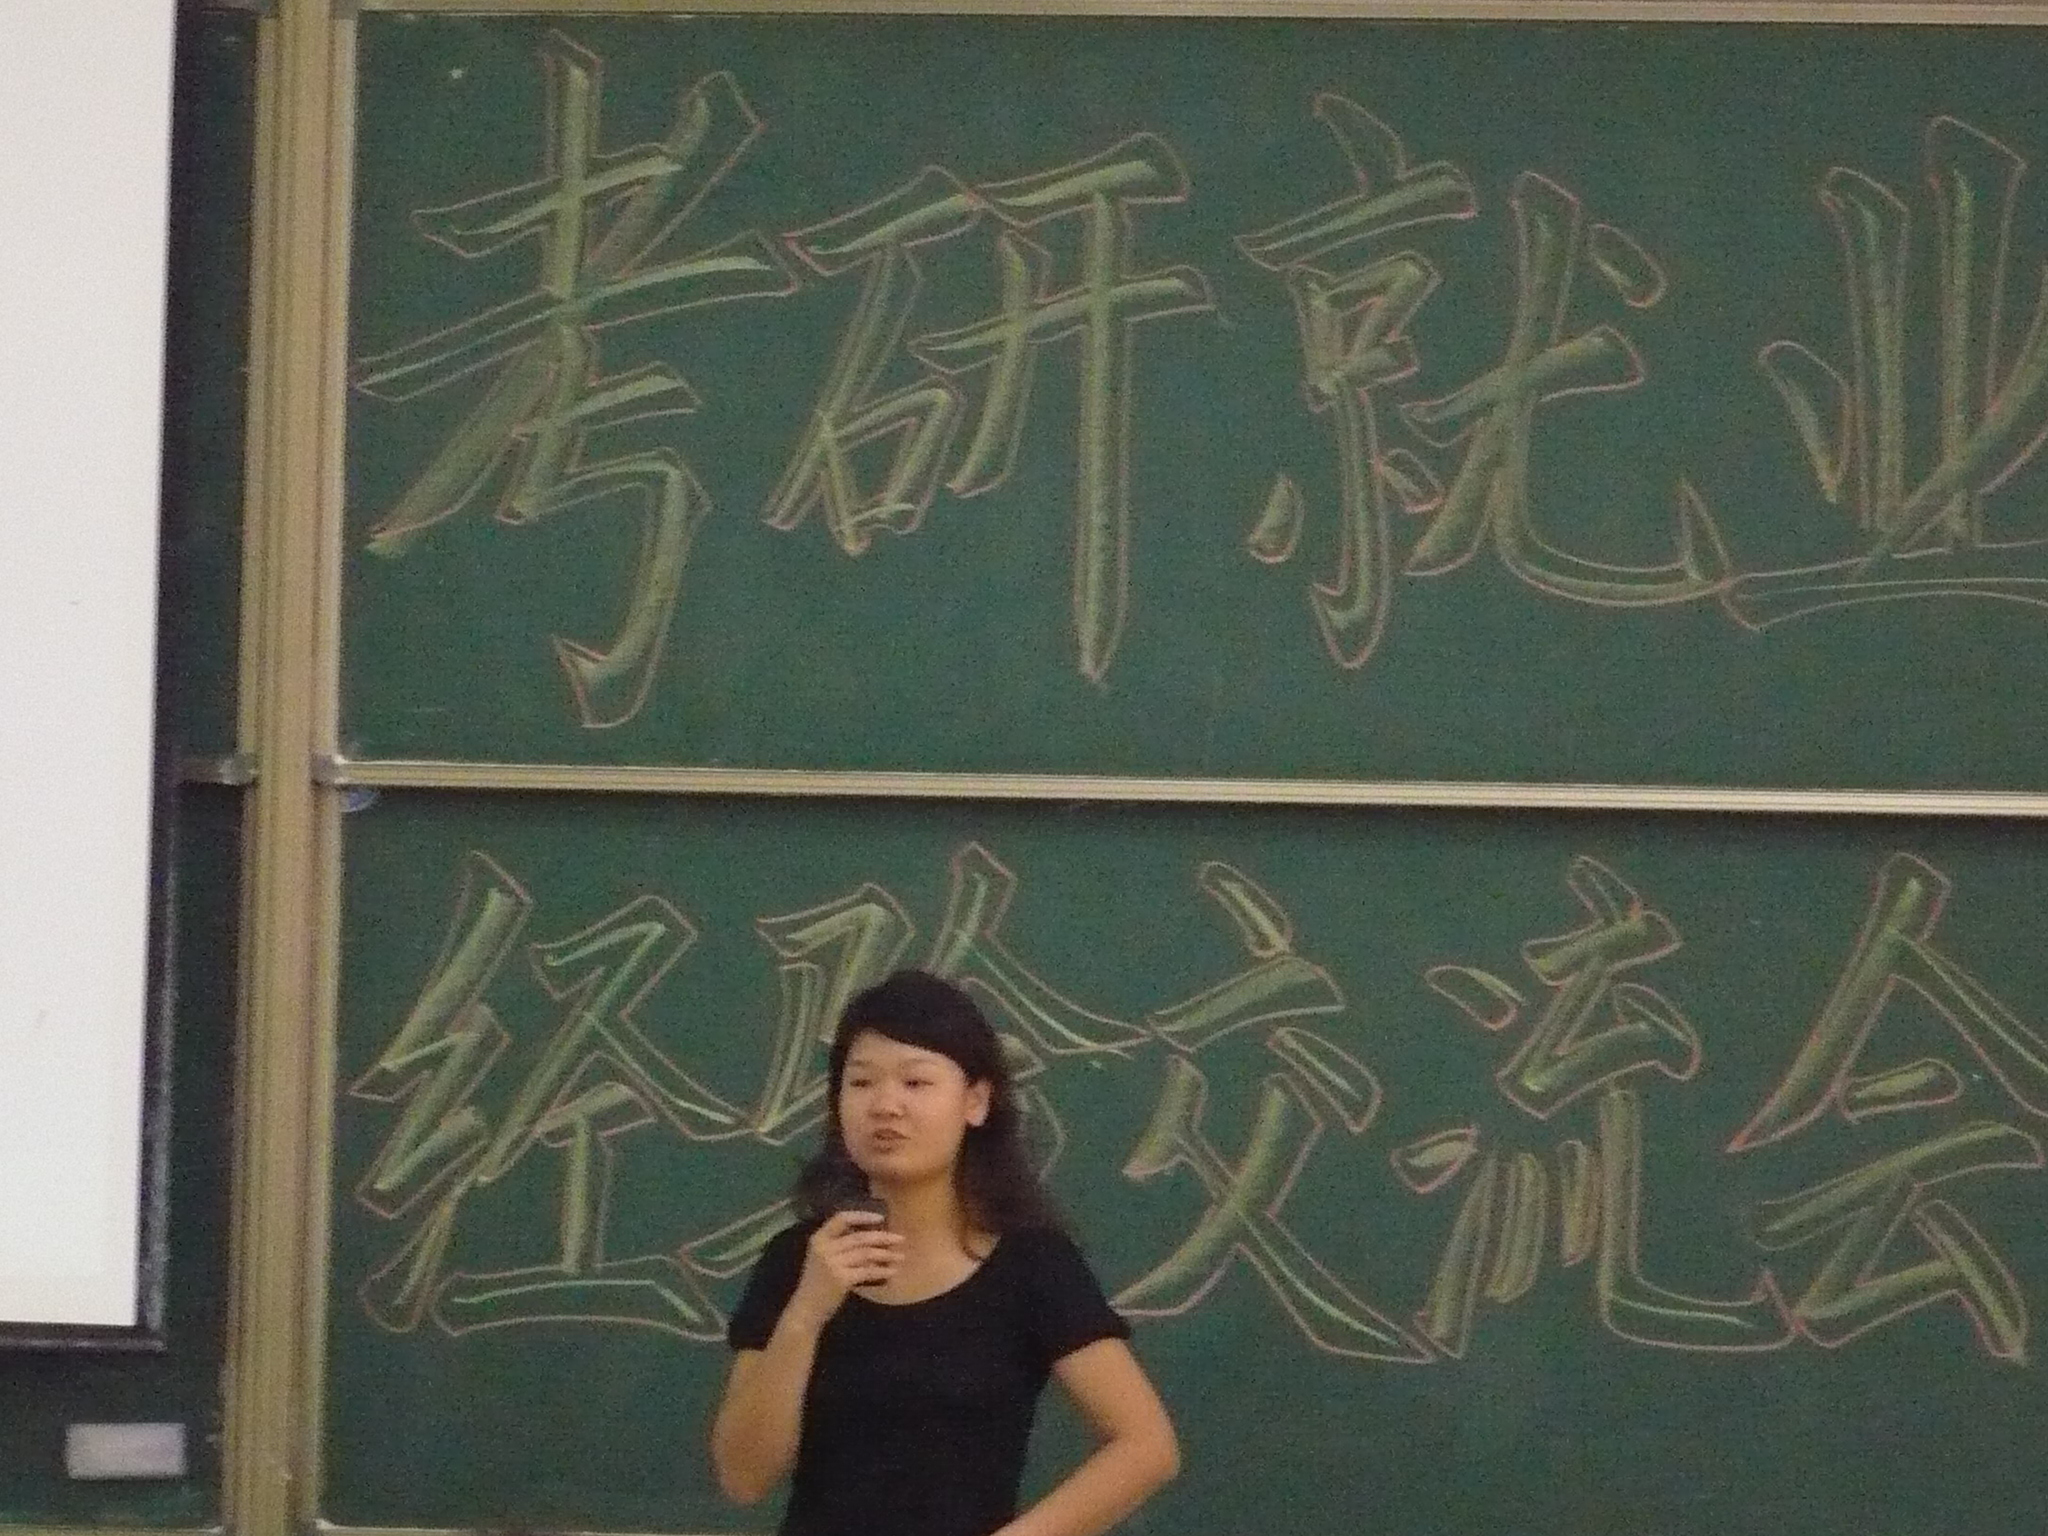 考研就业
经验交流会